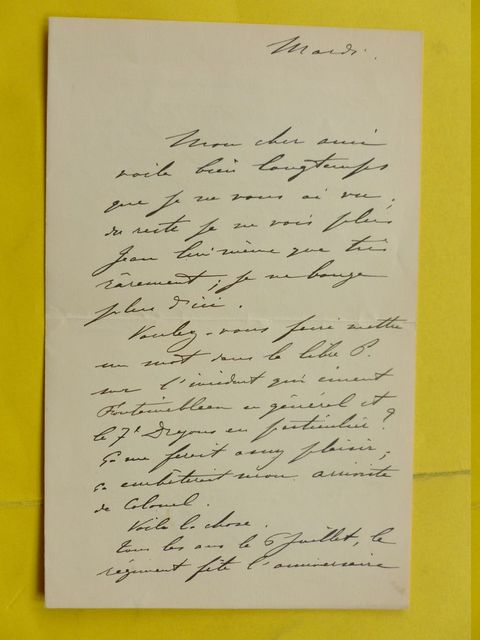 Mardi.
Mon cher ami
voila bien longtemps
que je ne vous ai vu,
du reste je ne vois plus
Jean lui même que très
rârement ; je ne bouge
plus d'ici.
Voulez-vous faire mettre
un mot dans la libre P.
sur l'incident qui émeut
Fontainebleau en général et
le 7e Dragons en particulier ?
ça me ferait assez plaisir,
ça embêterait mon arriviste
de Colonel.
Voila la chose.
tous les ans le 6 Juillet, le
régiment fête l'anniversaire